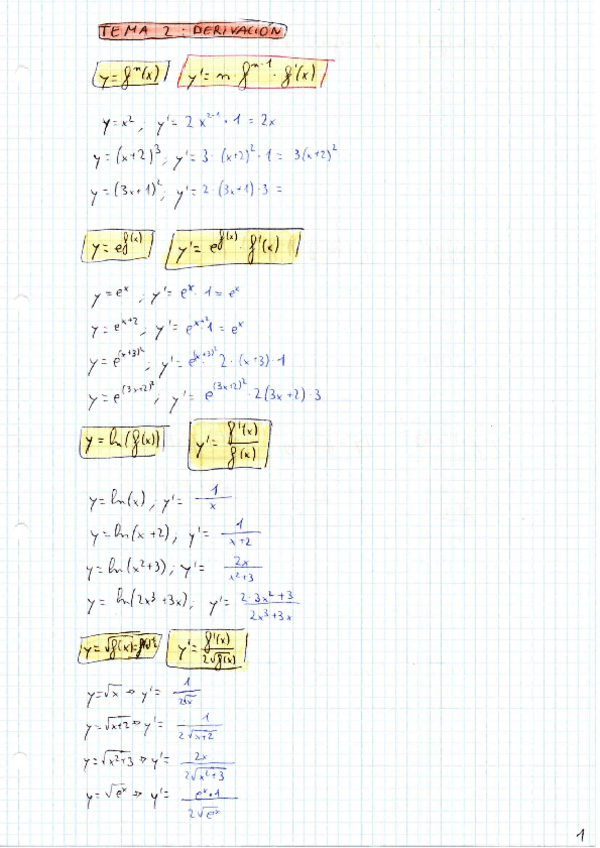 TEMA 2: DERIVACIÓN
y = fⁿ(x)   y' = n · fⁿ⁻¹ · f'(x)
y = x², y' = 2x²⁻¹ · 1 = 2x
y = (x+2)³, y' = 3 · (x+2)² · 1 = 3(x+2)²
y = (3x+1)², y' = 2 · (3x+1) · 3 =
y = e^f(x)   y' = e^f(x) · f'(x)
y = e^x, y' = e^x · 1 = e^x
y = e^(x+2), y' = e^(x+2) 1 = e^x
y = e^(x+3)², y' = e^(x+3)² · 2 · (x+3) · 1
y = e^(3x+2)², y' = e^(3x+2)² · 2(3x+2) · 3
y = ln(f(x))   y' = f'(x)/f(x)
y = ln(x), y' = 1/x
y = ln(x+2), y' = 1/(x+2)
y = ln(x²+3), y' = 2x/(x²+3)
y = ln(2x³+3x), y' = (2·3x²+3)/(2x³+3x)
y = √f(x) =   y' = f'(x)/(2√f(x))
y = √x ⇒ y' = 1/(2√x)
y = √(x+2) ⇒ y' = 1/(2√(x+2))
y = √(x²+3) ⇒ y' = 2x/(2√(x²+3))
y = √(e^x) ⇒ y' = (e^x · 1)/(2√(e^x))
1